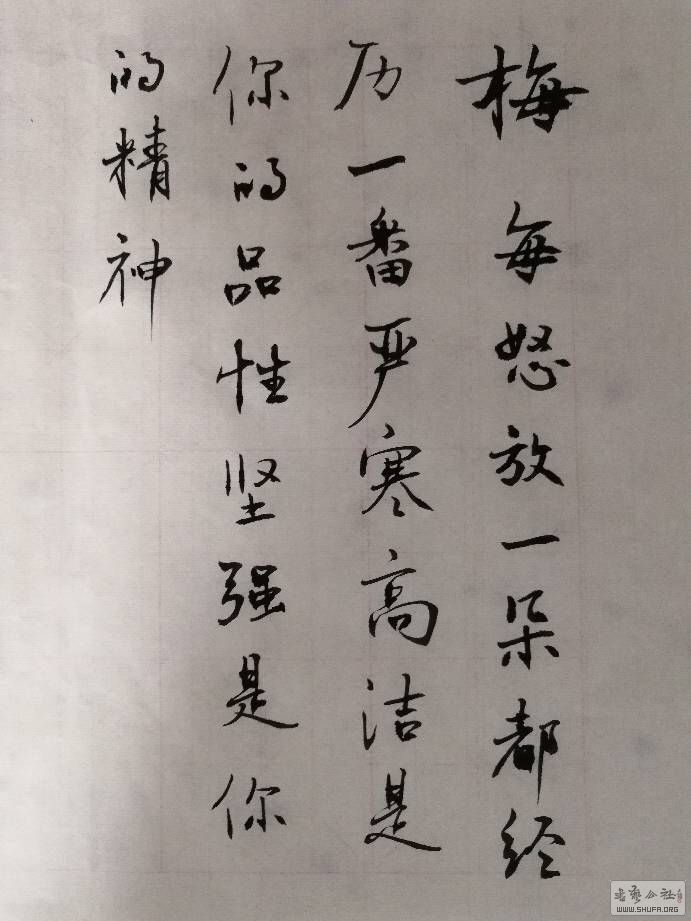 梅 每怒放一朵都经
历一番严寒高洁是
你的品性坚强是你
的精神
WWW.SHUFA.ORG